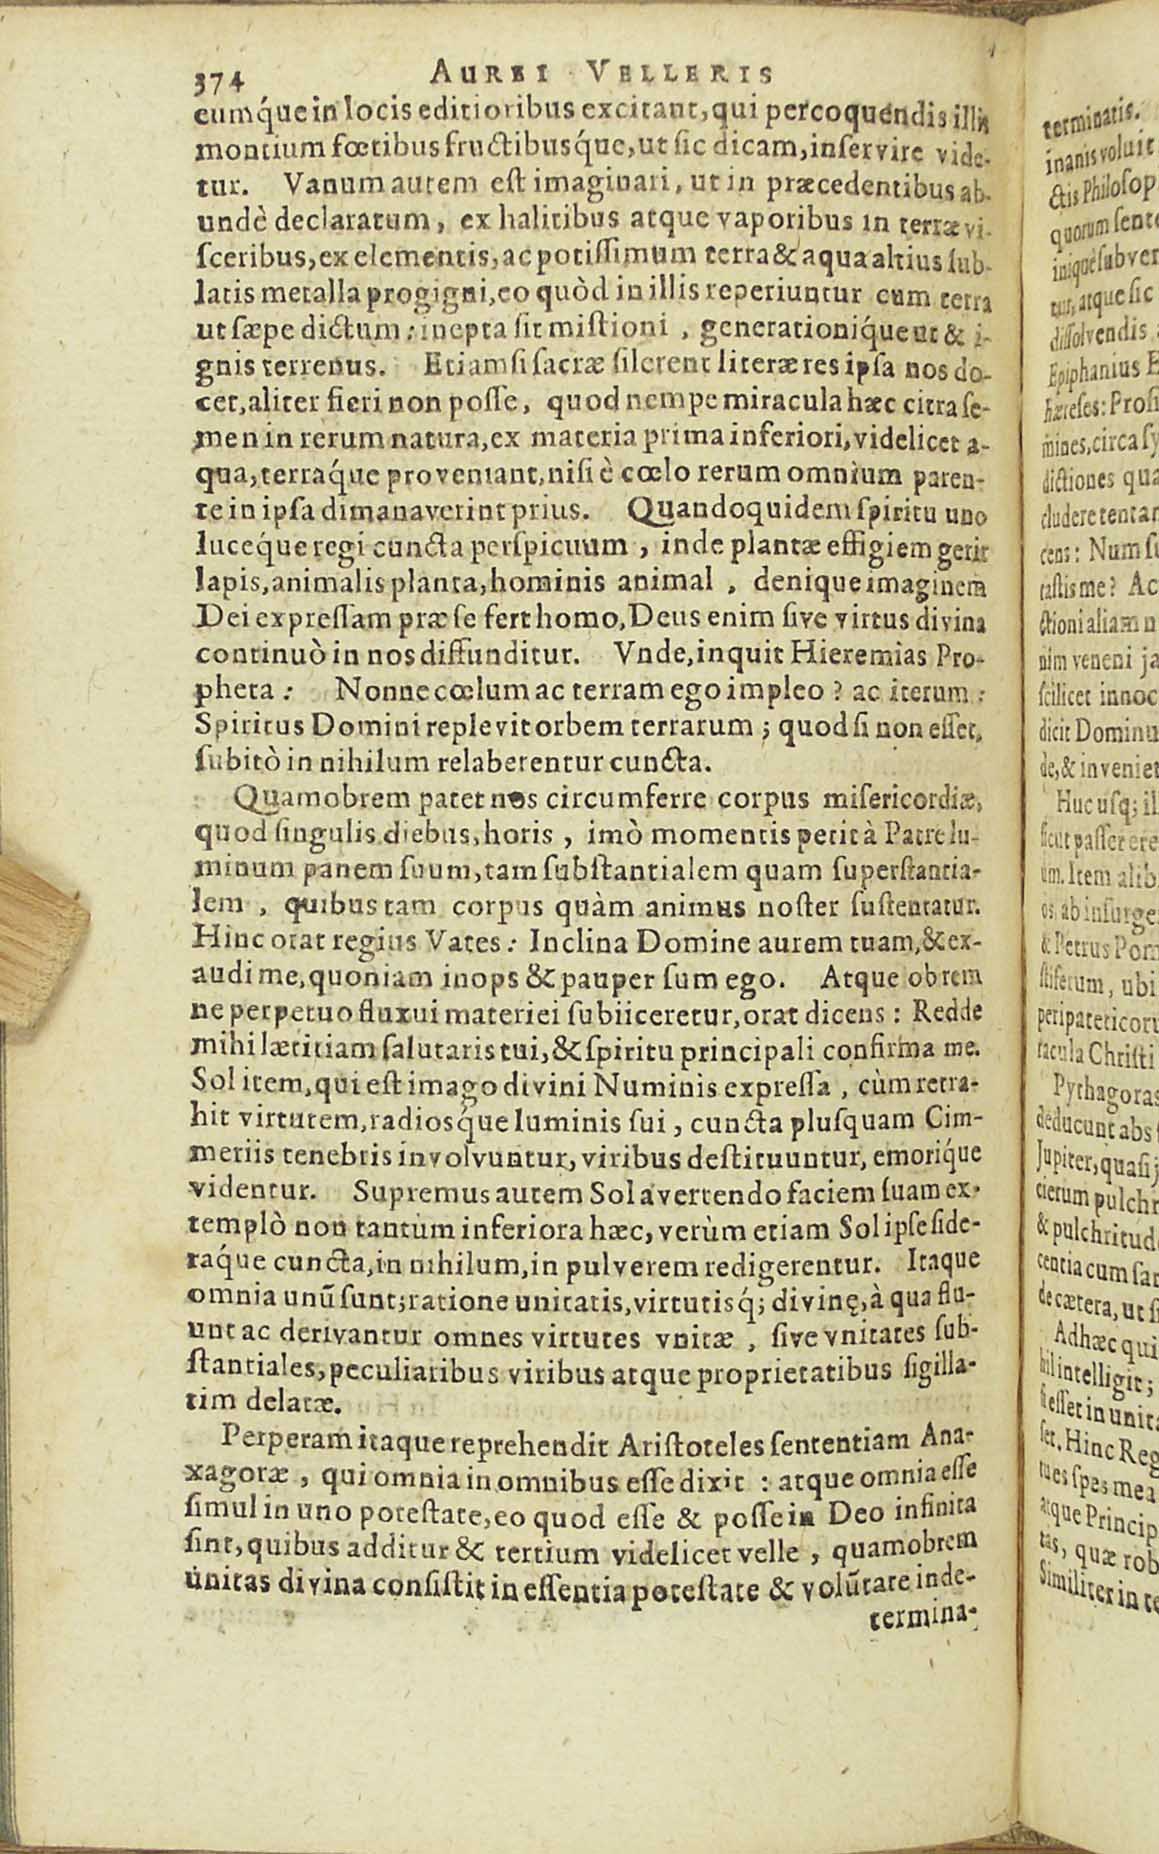 374 AUREI VELLERIS
eumq́ue in locis editioribus excitant, qui percoquendis illis
montium fœtibus fructibusq́ue, ut sic dicam, inservire vide-
tur. Vanum autem est imaginari, ut in præcedentibus ab-
undè declaratum, ex halitibus atque vaporibus in terræ vi-
sceribus, ex elementis, ac potissimum terra & aqua altius sub-
latis metalla progigni, eo quòd in illis reperiuntur cum terra
ut sæpe dictum: inepta sit mistioni, generationiq́ue ut & i-
gnis terrenus. Etiamsi sacræ silerent literæ res ipsa nos do-
cet, aliter fieri non posse, quod nempe miracula hæc citra se-
men in rerum natura, ex materia prima inferiori, videlicet a-
qua, terraq́ue proveniant, nisi è cœlo rerum omnium paren-
te in ipsa dimanaverint prius. Quandoquidem spiritu uno
luceq́ue regi cuncta perspicuum, inde plantæ effigiem gerit
lapis, animalis planta, hominis animal, denique imaginem
Dei expressam præ se fert homo, Deus enim sive virtus divina
continuò in nos diffunditur. Vnde, inquit Hieremias Pro-
pheta: Nonne cœlum ac terram ego impleo? ac iterum:
Spiritus Domini replevit orbem terrarum; quod si non esset,
subitò in nihilum relaberentur cuncta.
Quamobrem patet nos circumferre corpus misericordiæ,
quod singulis diebus, horis, imò momentis petit à Patre lu-
minum panem suum, tam substantialem quam superstantia-
lem, quibus tam corpus quàm animus noster sustentatur.
Hinc orat regius Vates: Inclina Domine aurem tuam, & ex-
audi me, quoniam inops & pauper sum ego. Atque ob rem
ne perpetuo fluxui materiei subiiceretur, orat dicens: Redde
mihi lætitiam salutaris tui, & spiritu principali confirma me.
Sol item, qui est imago divini Numinis expressa, cùm retra-
hit virtutem, radiosq́ue luminis sui, cuncta plusquam Cim-
meriis tenebris involvuntur, viribus destituuntur, emoriq́ue
videntur. Supremus autem Sol avertendo faciem suam ex-
templò non tantùm inferiora hæc, verùm etiam Sol ipse side-
raq́ue cuncta, in nihilum, in pulverem redigerentur. Itaque
omnia unũ sunt; ratione unitatis, virtutisq́; divinę, à qua flu-
unt ac derivantur omnes virtutes vnitæ, sive vnitates sub-
stantiales, peculiaribus viribus atque proprietatibus sigilla-
tim delatæ.
Perperam itaque reprehendit Aristoteles sententiam Ana-
xagoræ, qui omnia in omnibus esse dixit: atque omnia esse
simul in uno potestate, eo quod esse & posse in Deo infinita
sint, quibus additur & tertium videlicet velle, quamobrem
unitas divina consistit in essentia potestate & volũtate inde-
termina-
terminatis.
inanis voluit
ctis Philosop
quorum sente
iniquè subver
tur, atque sic
dissolvendis
Epiphanius
hæreses: Prosi
mines, circa sy
dictiones qua
cludere tentar
cens: Num su
tastis me? Ac
ctioni aliam n
nim veneni ja
scilicet innoc
dicit Dominu
de, & inveniet
Huc usq; il
sicut passer ere
um. Item alib
os, ab insurge
& Petrus Pom
stiferum, ubi
peripateticoru
racula Christi
Pythagoras
deducunt abs
Jupiter, quasi j
cierum pulchr
& pulchritud
centia cum sar
de cætera, ut si
Adhæc qui
hil intelligit;
si esset in unita
set. Hinc Reg
tu es spes mea
atque Princip
tas, quæ rob
Similiter in te